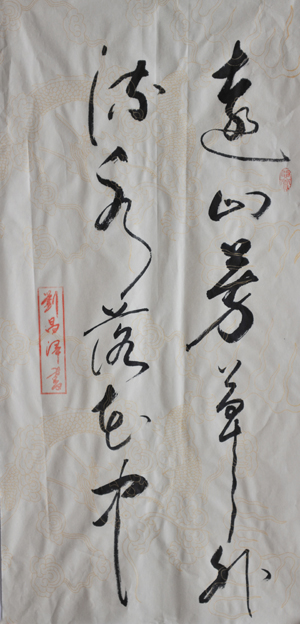 遠山芳草外
流水落花中
劉昌澤書